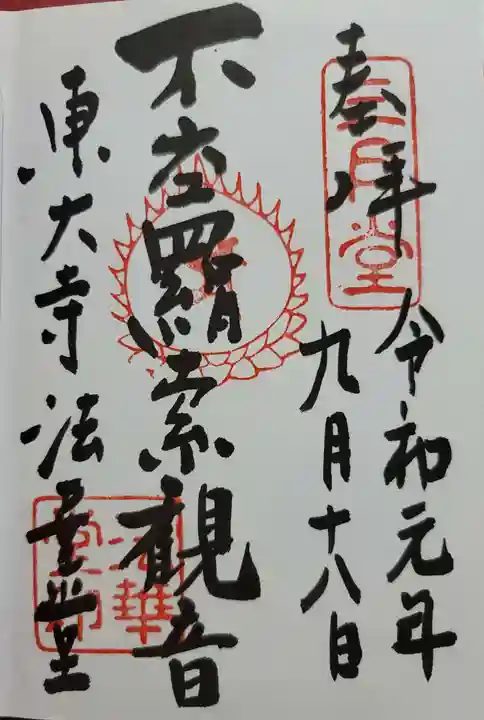 三月堂
奉拝
令和元年
九月十八日
不空羂索観音
東大寺法華堂
法華
堂印